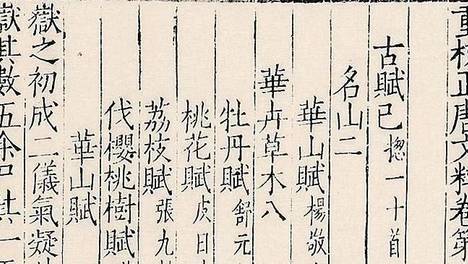 重校正唐文粹卷第
古賦己 揔一十首
名山二
華山賦 楊敬
華卉草木八
牡丹賦 舒元
桃花賦 皮日
荔枝賦 張九
伐櫻桃樹賦
華山賦
嶽之初成二儀氣凝
嶽其數五余尸其一